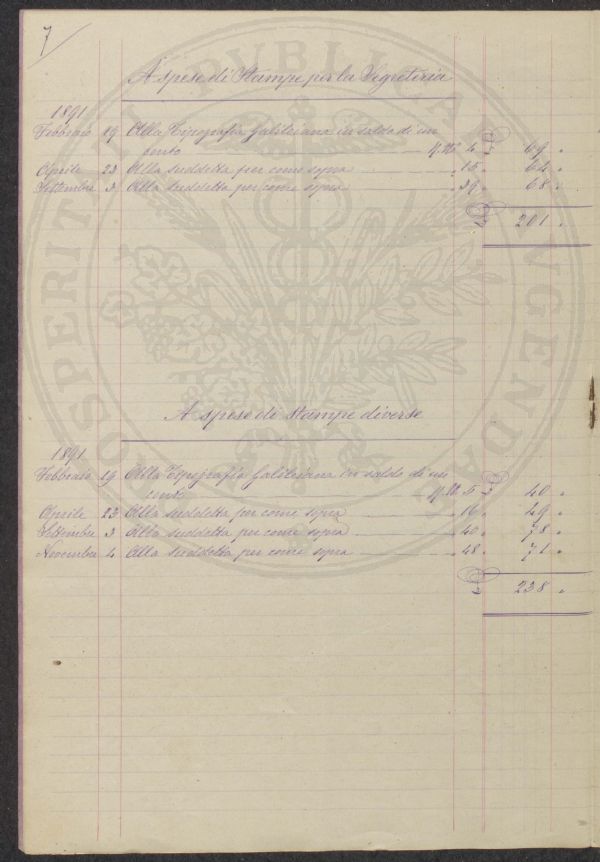 7
A spese di Stampe per la Segreteria
1891
Febbraio 19 Alla Tipografia Galileiana in saldo di un
conto M. N. 4 £ 69 "
Aprile 23 Alla suddetta per come sopra " 15 " 64 "
Settembre 3 Alla suddetta per come sopra " 39 " 68 "
£ 201 "
A spese di Stampe diverse
1891
Febbraio 19 Alla Tipografia Galileiana in saldo di un
conto M. N. 5 £ 40 "
Aprile 23 Alla suddetta per come sopra " 16 " 49 "
Settembre 3 Alla suddetta per come sopra " 40 " 78 "
Novembre 4 Alla suddetta per come sopra " 48 " 71 "
£ 238 "
PROSPERITATI PUBLICAE AUGENDAE